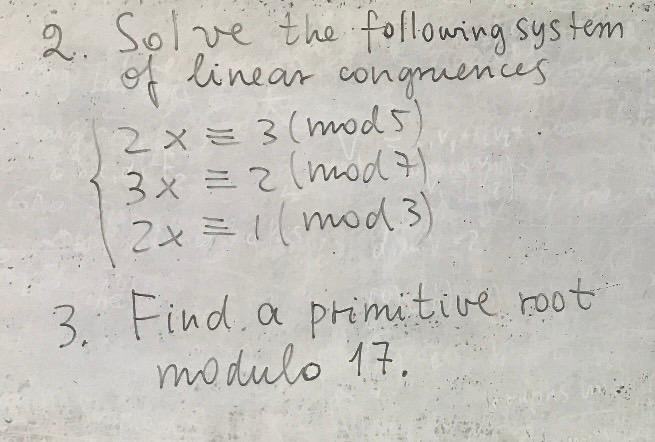 2. Solve the following system
of linear congruences
2x ≡ 3 (mod 5)
3x ≡ 2 (mod 7)
2x ≡ 1 (mod 3)
3. Find a primitive root
modulo 17.